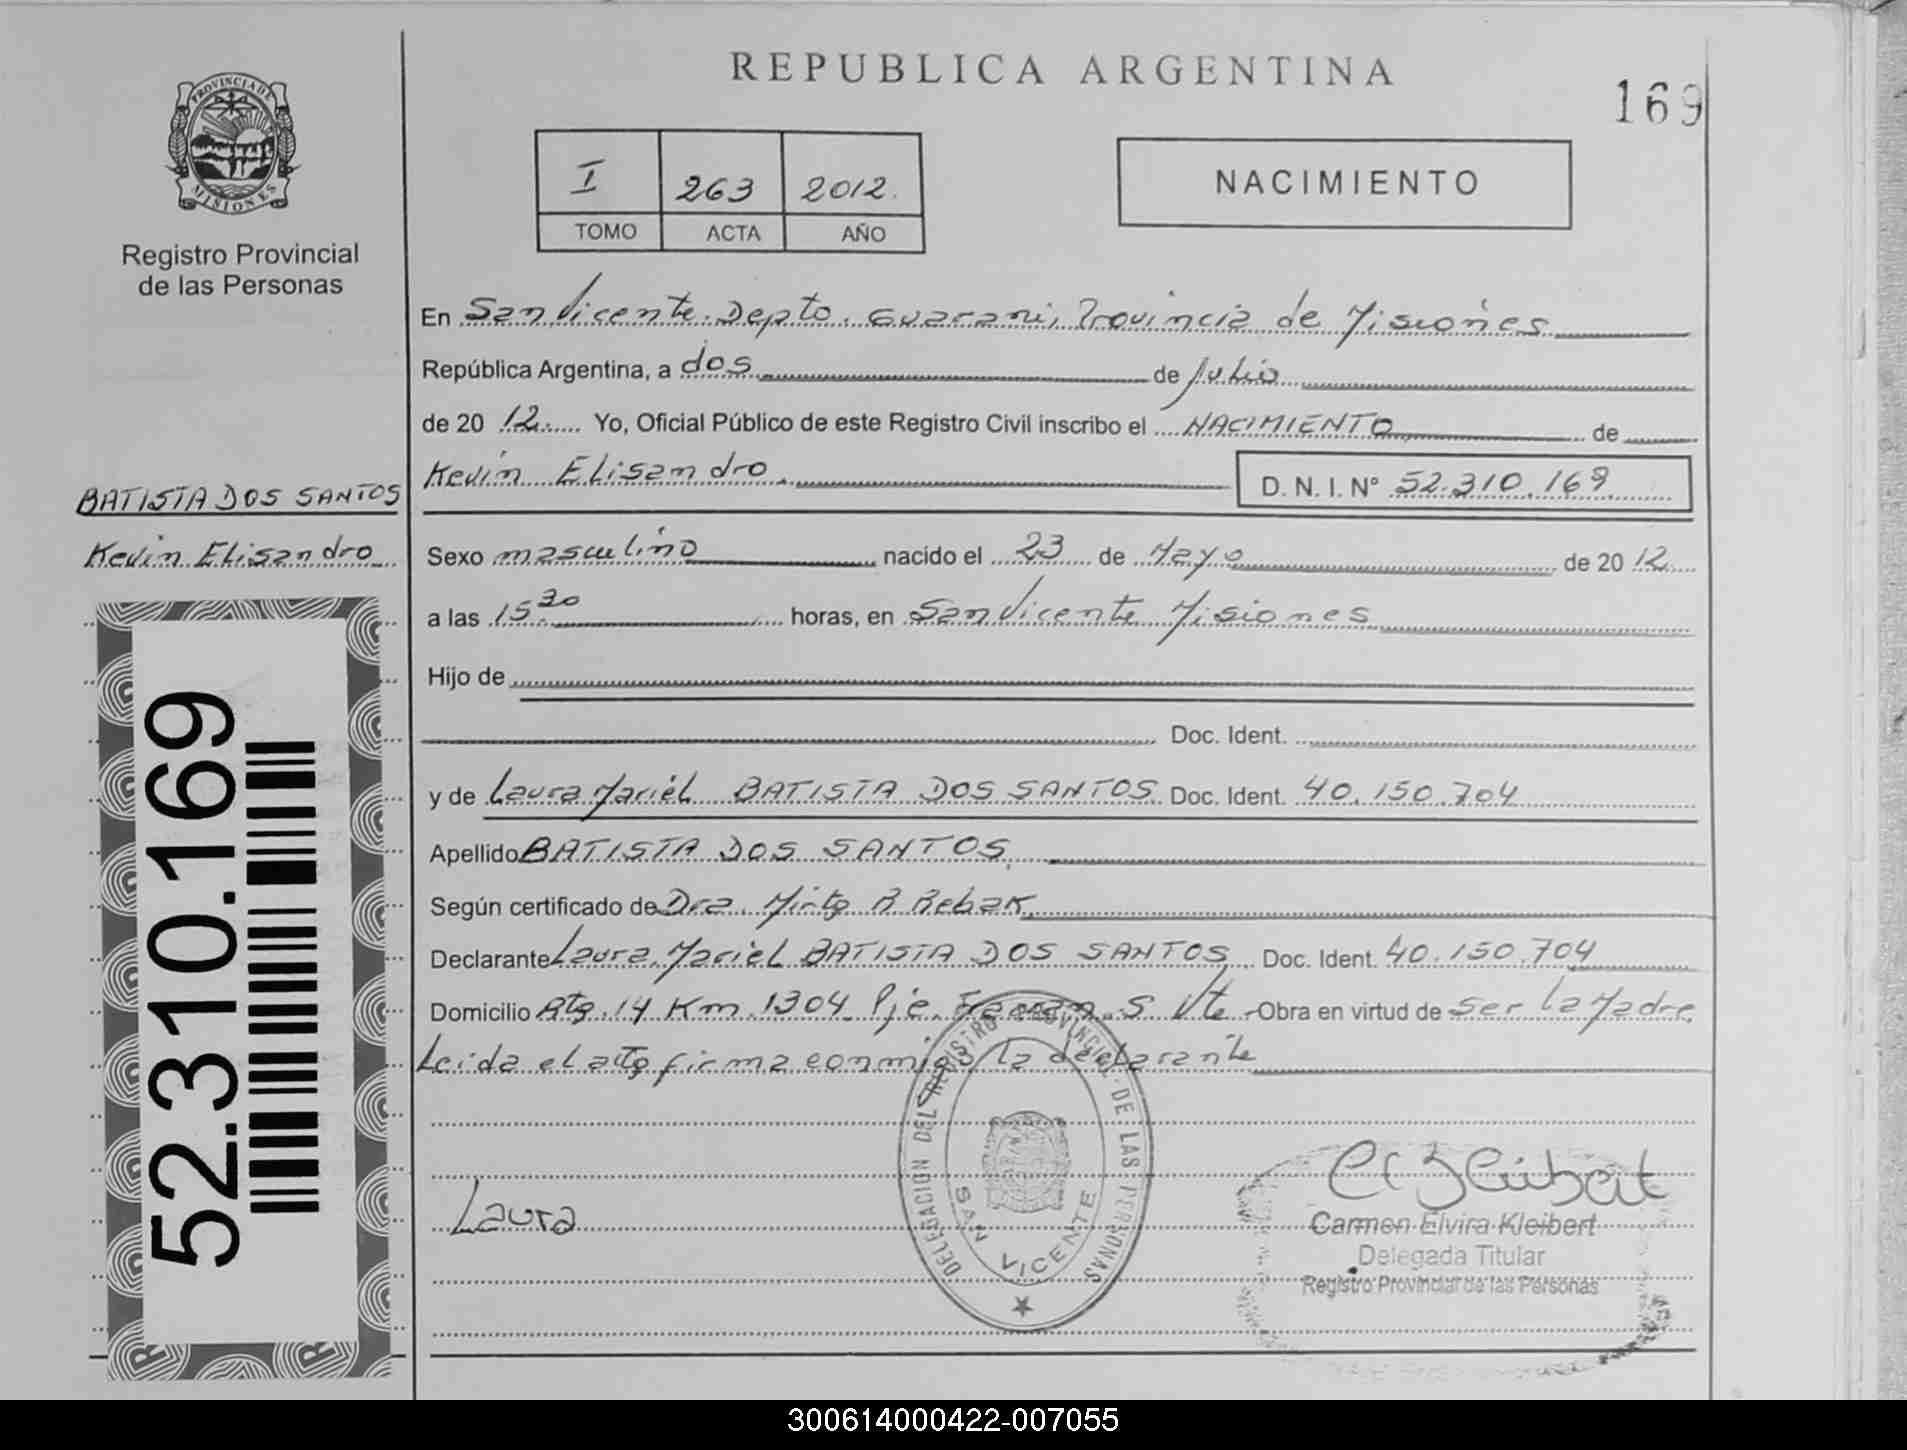 REPUBLICA ARGENTINA
169
PROVINCIA DE
MISIONES
Registro Provincial
de las Personas
I 263 2012.
TOMO ACTA AÑO
NACIMIENTO
En San Vicente. Depto. Guarani, Provincia de Misiones
República Argentina, a dos de Julio
de 20 12 Yo, Oficial Público de este Registro Civil inscribo el NACIMIENTO de
Kevin Elisandro. D. N. I. Nº 52.310.169
BATISTA DOS SANTOS
Kevin Elisandro
Sexo masculino nacido el 23 de Mayo de 20 12
a las 15.30 horas, en San Vicente Misiones
Hijo de
Doc. Ident.
y de Laura Mariel BATISTA DOS SANTOS Doc. Ident. 40.150.704
Apellido BATISTA DOS SANTOS.
Según certificado de Dra. Mirta R Rebak
Declarante Laura Mariel BATISTA DOS SANTOS Doc. Ident. 40.150.704
Domicilio Rta. 14 Km. 1304 Pje. S Vte. Obra en virtud de ser la Madre
Leida el acta firma conmigo la declarante
52.310.169
DELEGACION DEL REGISTRO PROVINCIAL DE LAS PERSONAS
SAN VICENTE
Laura
Carmen Elvira Kleibert
Delegada Titular
Registro Provincial de las Personas
300614000422-007055